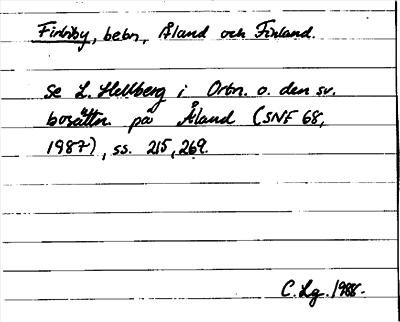 Finby, bebn, Åland och Finland.
Se L. Hellberg i Ortn. o. den sv.
bosättn på Åland (SNF 68,
1987), ss. 215, 269.
C. Lg. 1988.